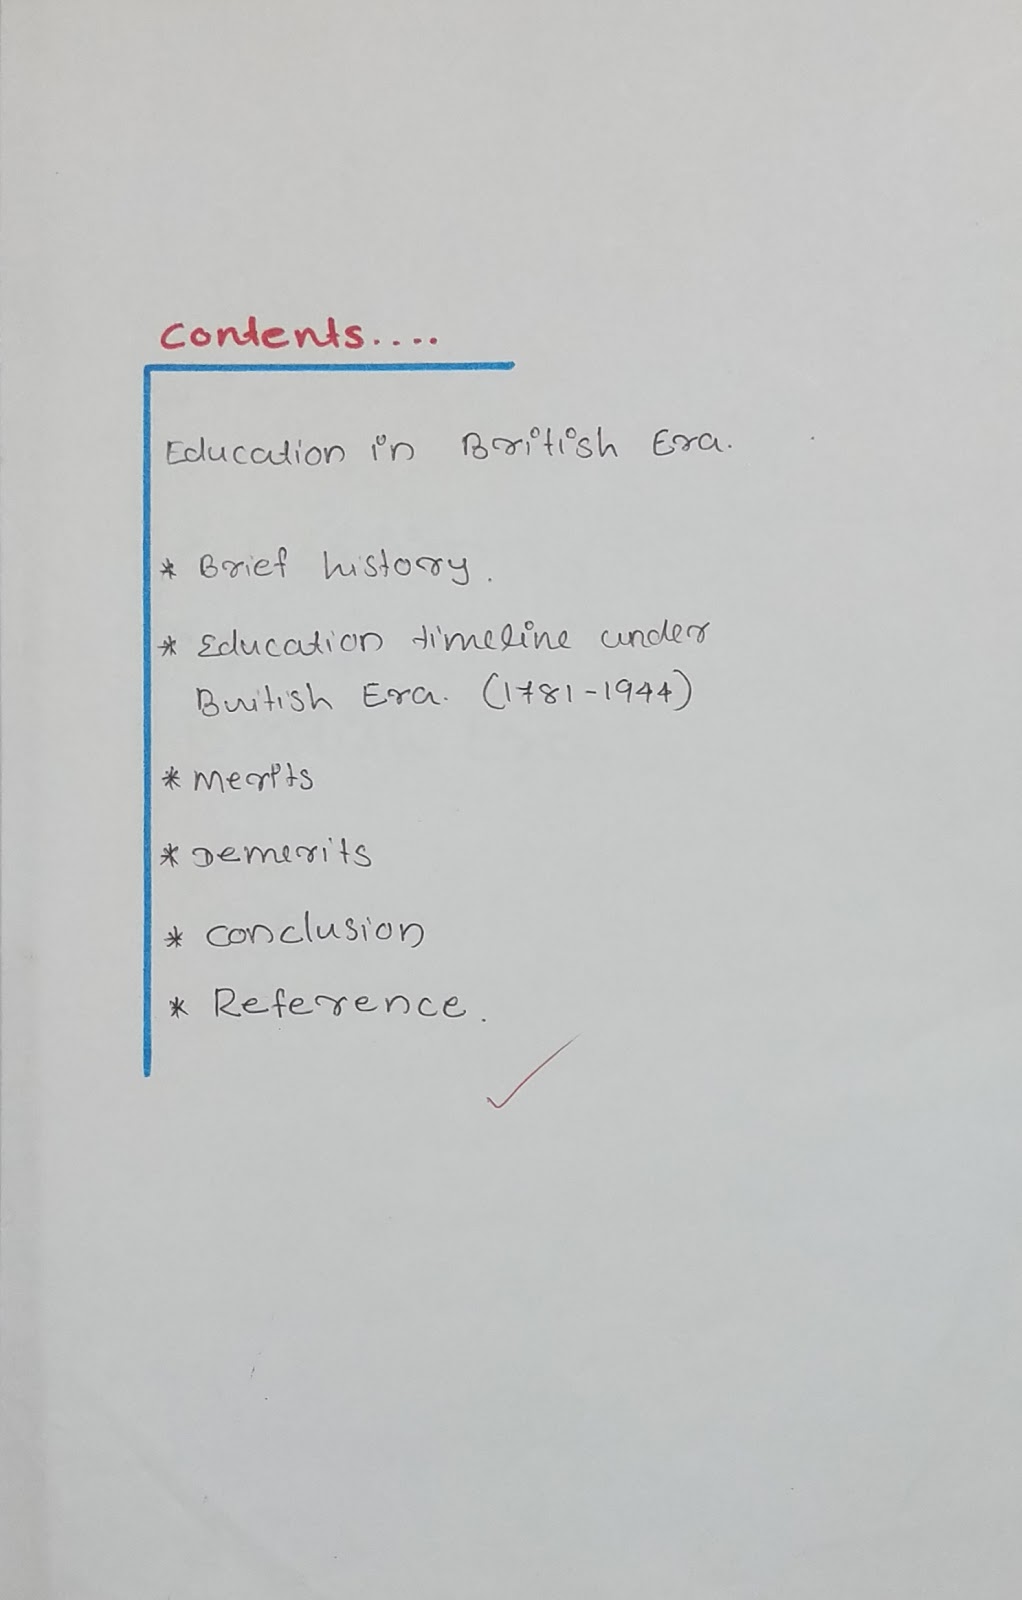 Contents....
Education in British Era.
* Brief history.
* Education timeline under
British Era. (1781-1944)
* Merits
* Demerits
* Conclusion
* Reference.